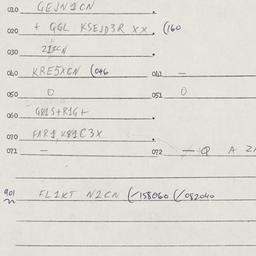 010 GEJN1CN
020 + QGL KSEJD3R XX. (160
030 21FCN
040 KRE5XCN (046 041 —
050 0 051 0
060 G81S+R1G+
070 FAR1 K81C3X
071 — 072 — Q A
901 FL1KT N1CN (/158060 (/092040